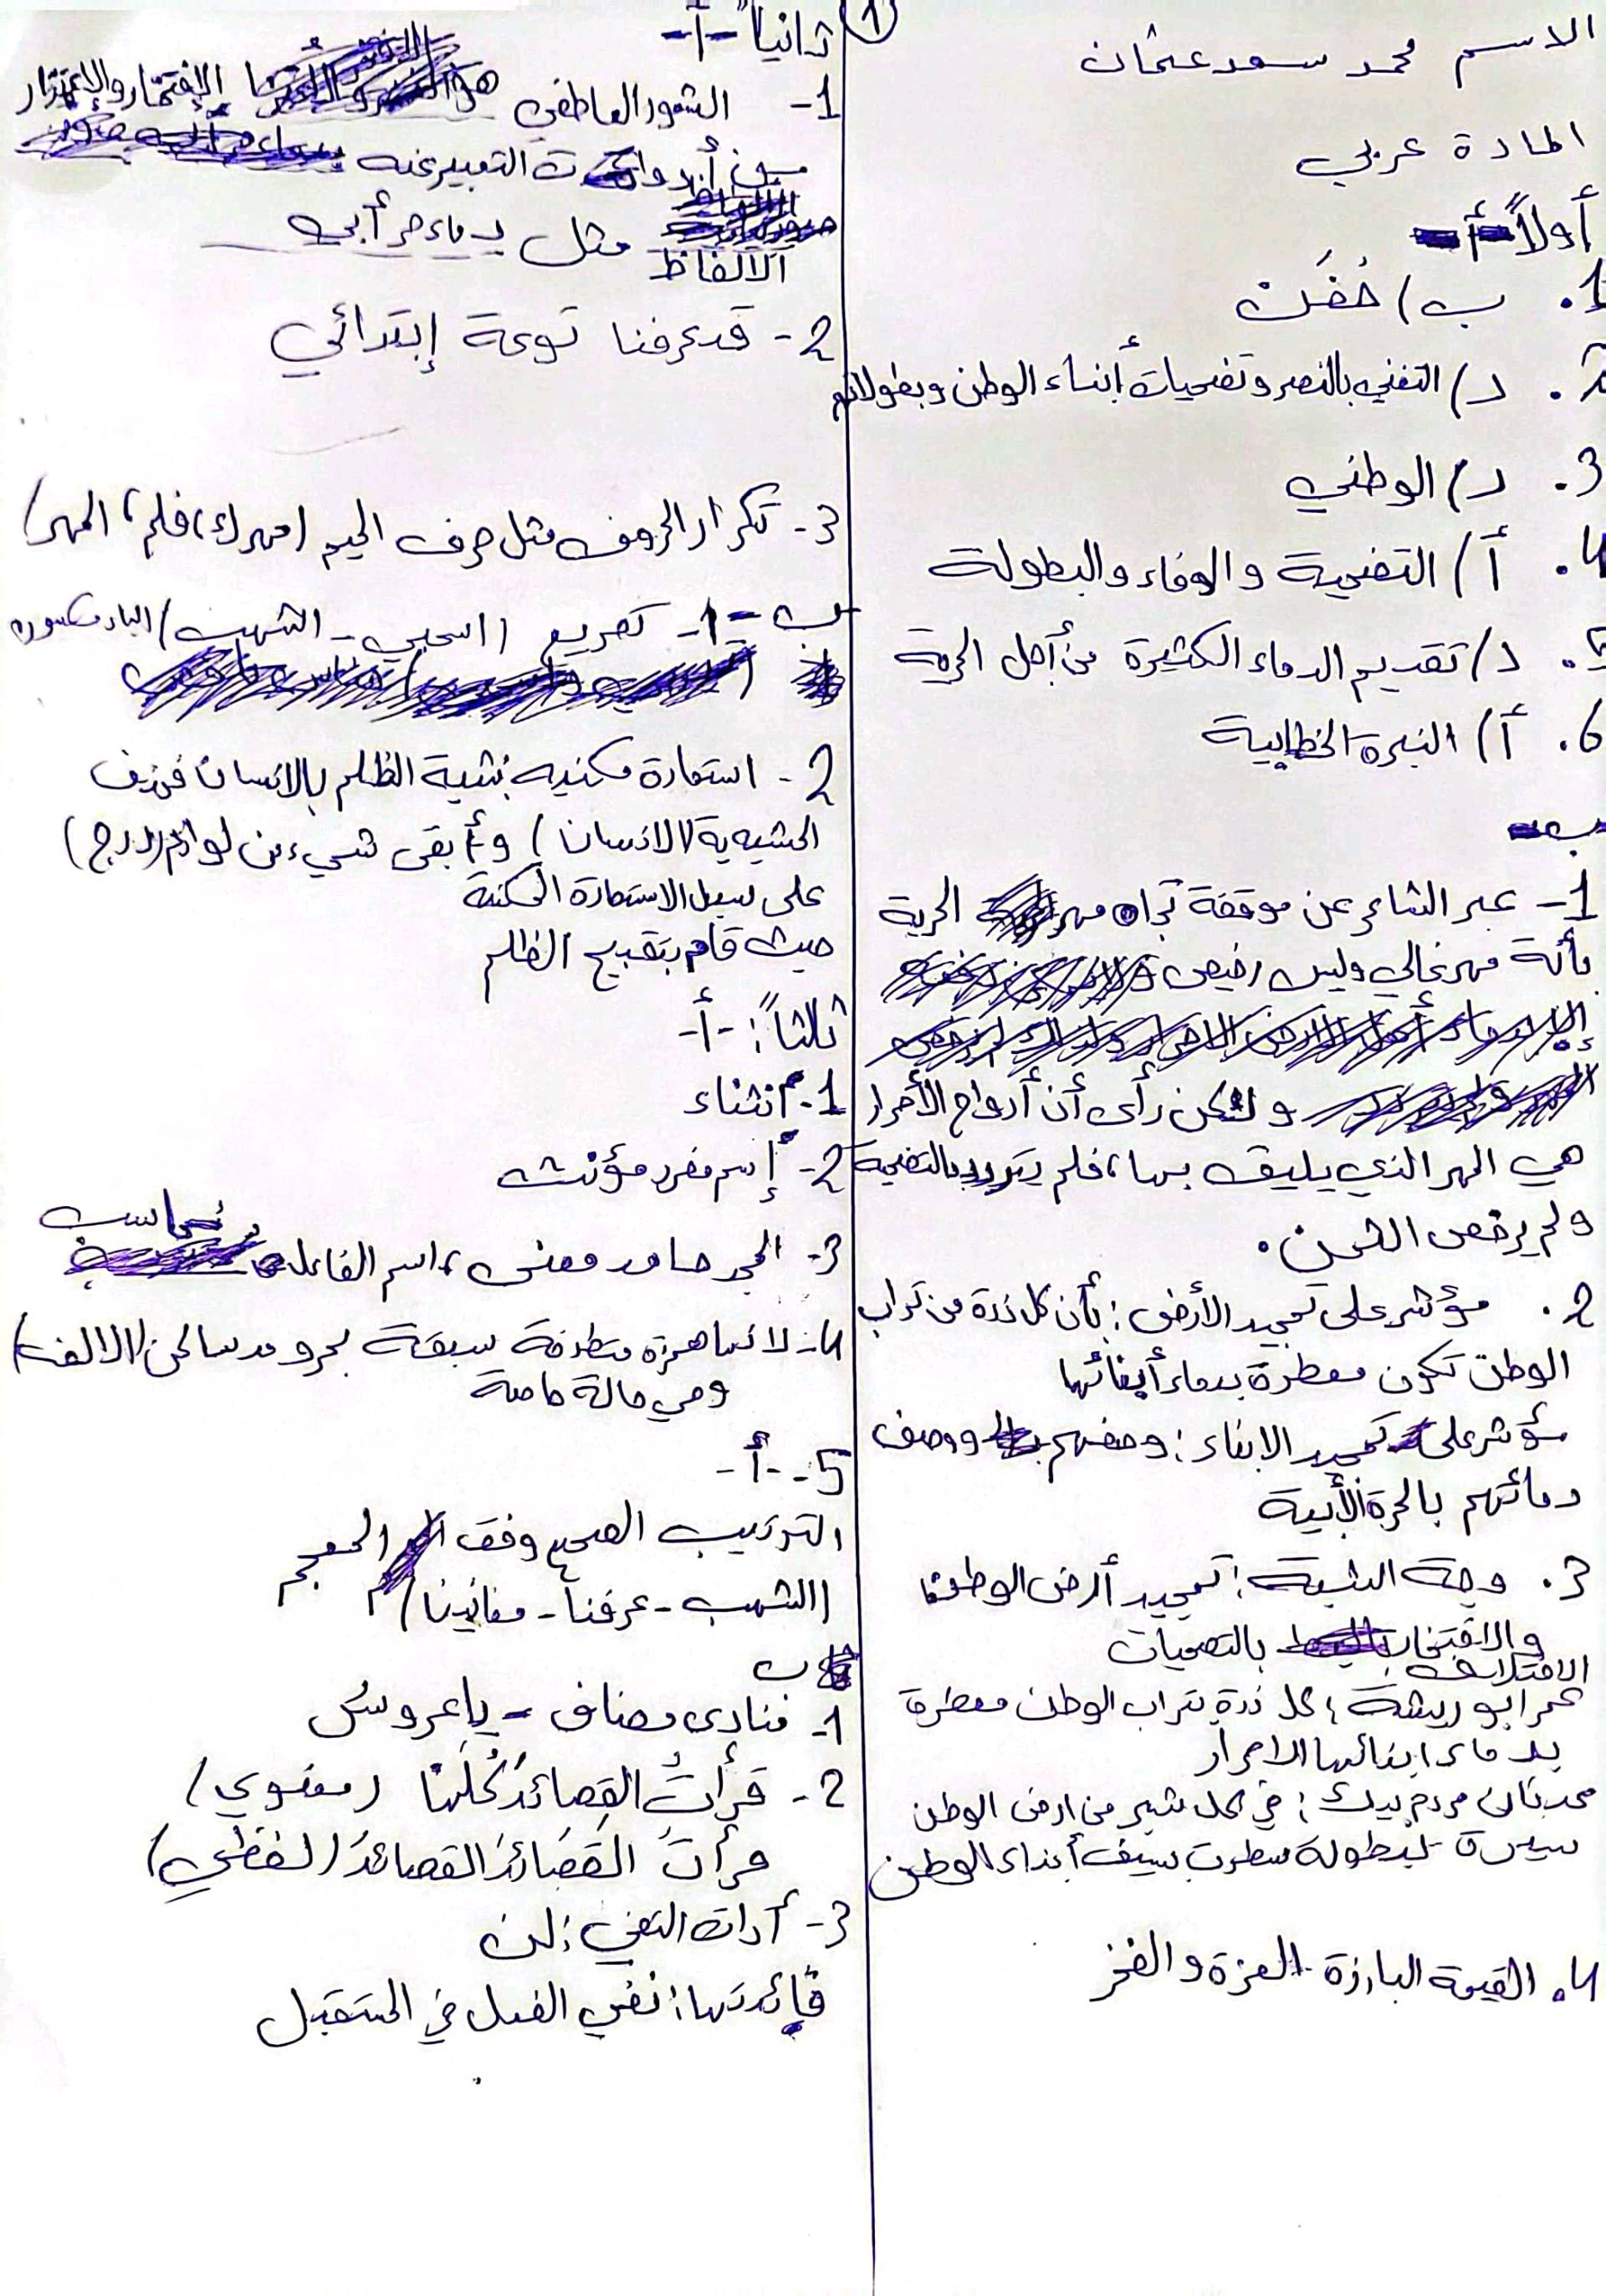 الاسم محمد سعد عثمان
المادة عربي
أولاً أ-
1. ب) خفن
2. د) التغني بالنصر وتضحيات أبناء الوطن وبطولاتهم
3. د) الوطني
4. أ) التضحية والوفاء والبطولة
5. د) تقديم الدماء الكثيرة من أجل الحرية
6. أ) النبرة الخطابية
ب-
1- عبر الشاعر عن موقفة تجاه مهر الحرية
بأنة مهر غالي وليس رخيص
ولكن رأى أن أرواح الأحرار
هي المهر الذي يليق بها، فلم يتردد بالتضحية
ولم يرخص الثمن.
2. مؤشر على تمجيد الأرض: بأن كل ذرة من تراب
الوطن تكون معطرة بدماء أبنائها
مؤشر على تمجيد الابناء: وصفهم ووصف
دمائهم بالحرة الأبية
3. وجة الشبة: تمجيد أرض الوطن
والافتخار بالتضحيات
الاختلاف:
عمر ابو ريشة: كل ذرة تراب الوطن معطرة
بدماء ابنائها الاحرار
عدنان مردم بيك: في كل شبر من ارض الوطن
سيرة لبطولة سطرت بسيف أبناء الوطن
4. القيمة البارزة العزة والفخر
1
ثانياً -أ-
1- الشعور العاطفي هو الإفتخار والإعتزار
من أدوات التعبير عنه
الالفاظ مثل دماء حر أبي
2- قد عرفنا نوعة إبتدائي
3- تكرار الحروف مثل حرف الميم (مهرك، فلم، المهر)
ب -1- تصريع (اسحبي - الشهب) الباء مكسوره
2- استعارة مكنيه: شبة الظلم بالانسان فحذف
المشبه بة (الانسان) وأبقى شيء من لوازم (درج)
على سبيل الاستعارة المكنية
حيث قام بتقبيح الظلم
ثالثاً: -أ-
1- إنشاء
2- إسم مفرد مؤنث
3- المجد جامد معنى، اسم الفاعل
4- لانها همزة متطرفة سبقة بحرو مد ساكن (الالف)
وهي حالة خاصة
5- -أ-
الترتيب الصحيح وفق المعجم
(الشهب - عرفنا - مغانينا)
ب
1- منادى مضاف - يا عروسُ
2- قرأتُ القصائدَ كُلَّها (معنوي)
قرأتُ القصائدَ القصائدَ (لفظي)
3- أدات النفي: لن
فائدتها: نفي الفعل في المستقبل